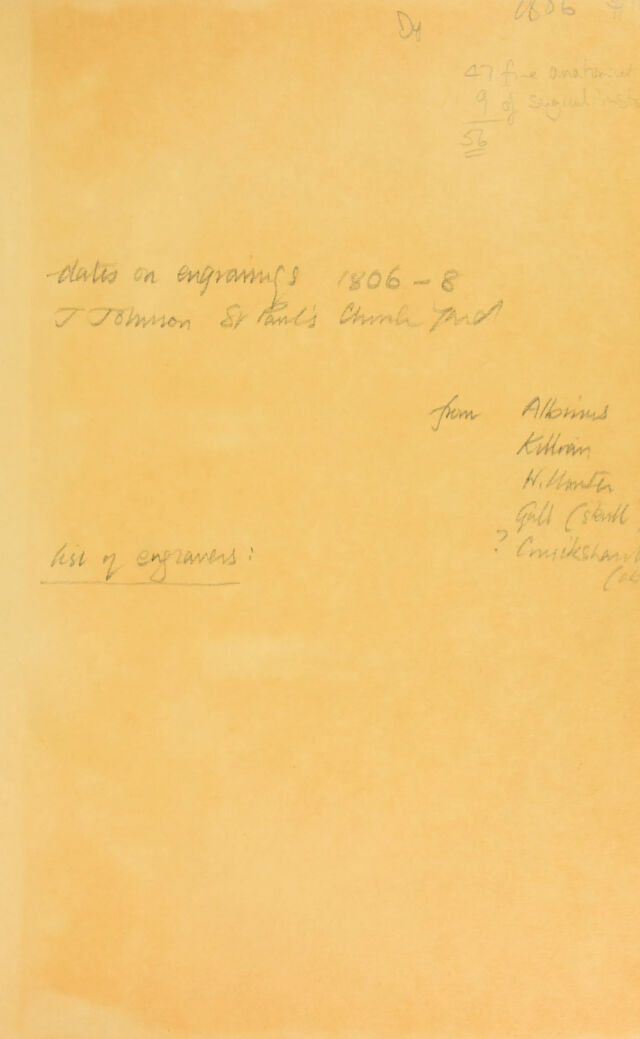 1806
47 fine anatomical
9 of surgical inst
56
dates on engravings 1806-8
J Johnson St Paul's Church Yard
from Albinus
W. Hunter
Gall (skull
list of engravers:
? Cruikshank